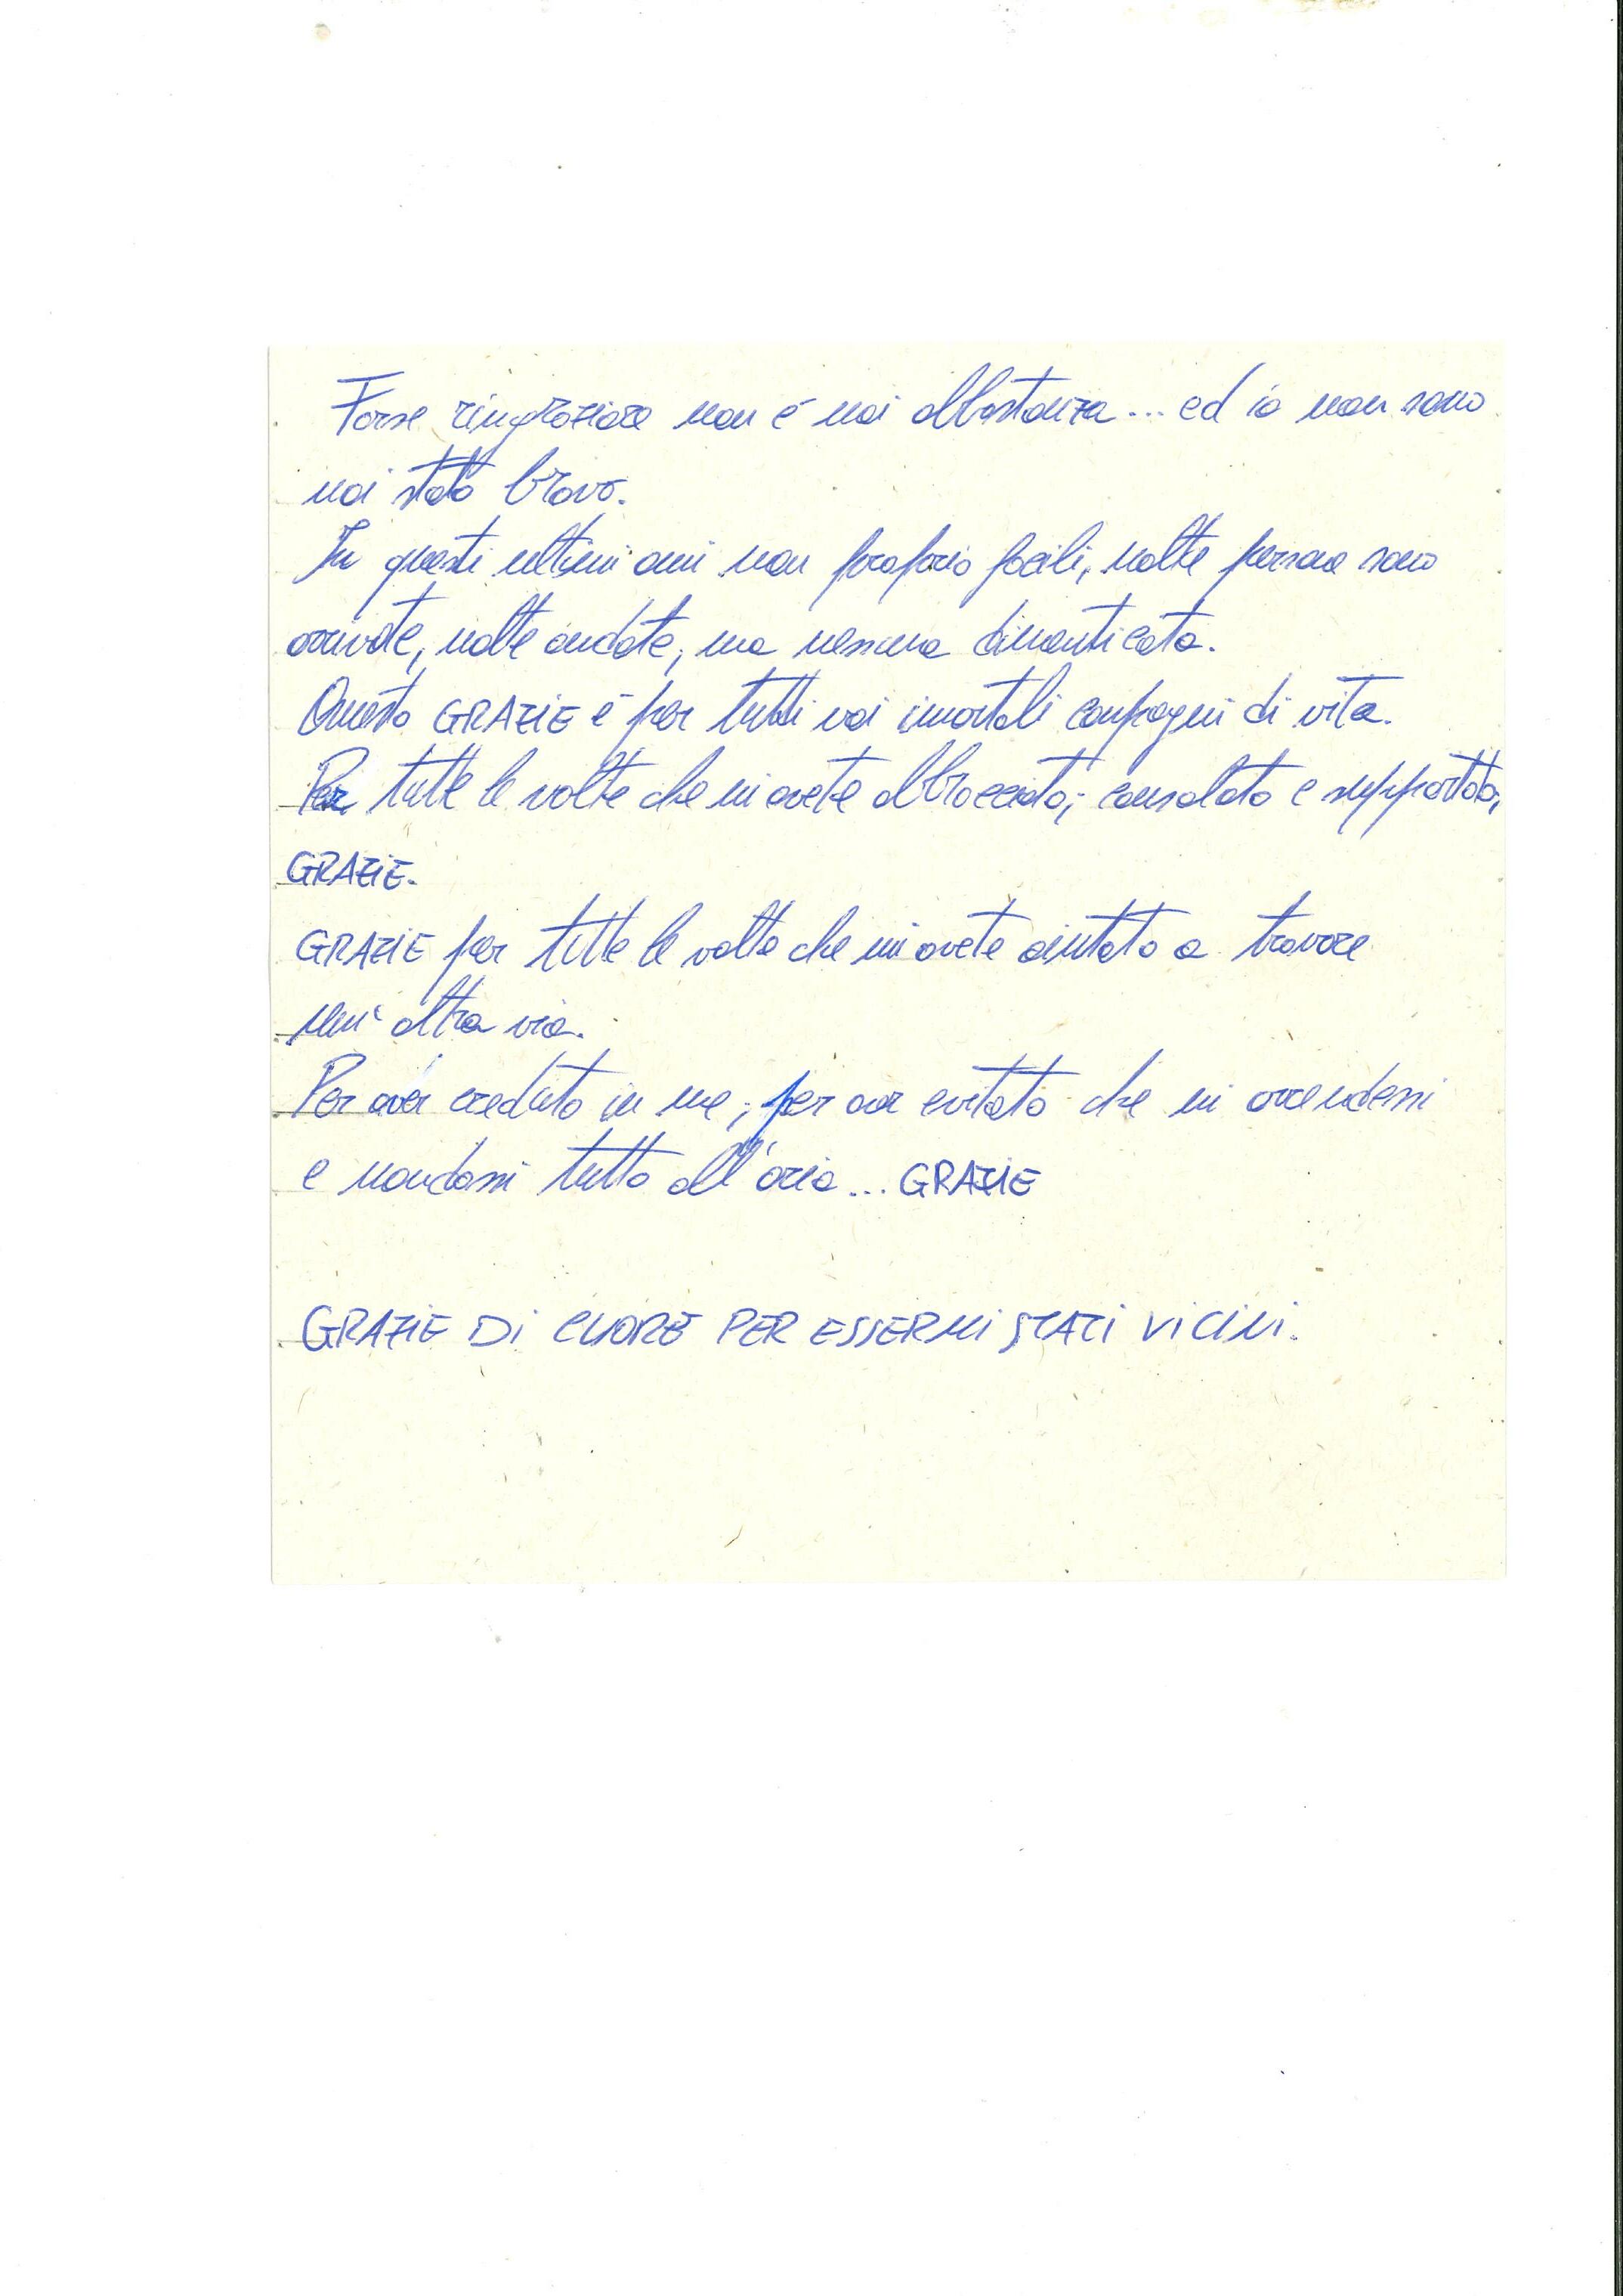 Forse ringraziare non é mai abbastanza... ed io non sono
mai stato bravo.
In questi ultimi anni non proprio facili, molte persone sono
arrivate, molte andate, ma nessuna dimenticata.
Questo GRAZIE é per tutti voi immortali compagni di vita.
Per tutte le volte che mi avete abbracciato, consolato e supportato,
GRAZIE.
GRAZIE per tutte le volte che mi avete aiutato a trovare
un'altra via.
Per aver creduto in me, per aver evitato che mi arrendessi
e mandassi tutto all'aria... GRAZIE
GRAZIE Di CUORE PER ESSERMi STATi ViCiNi.